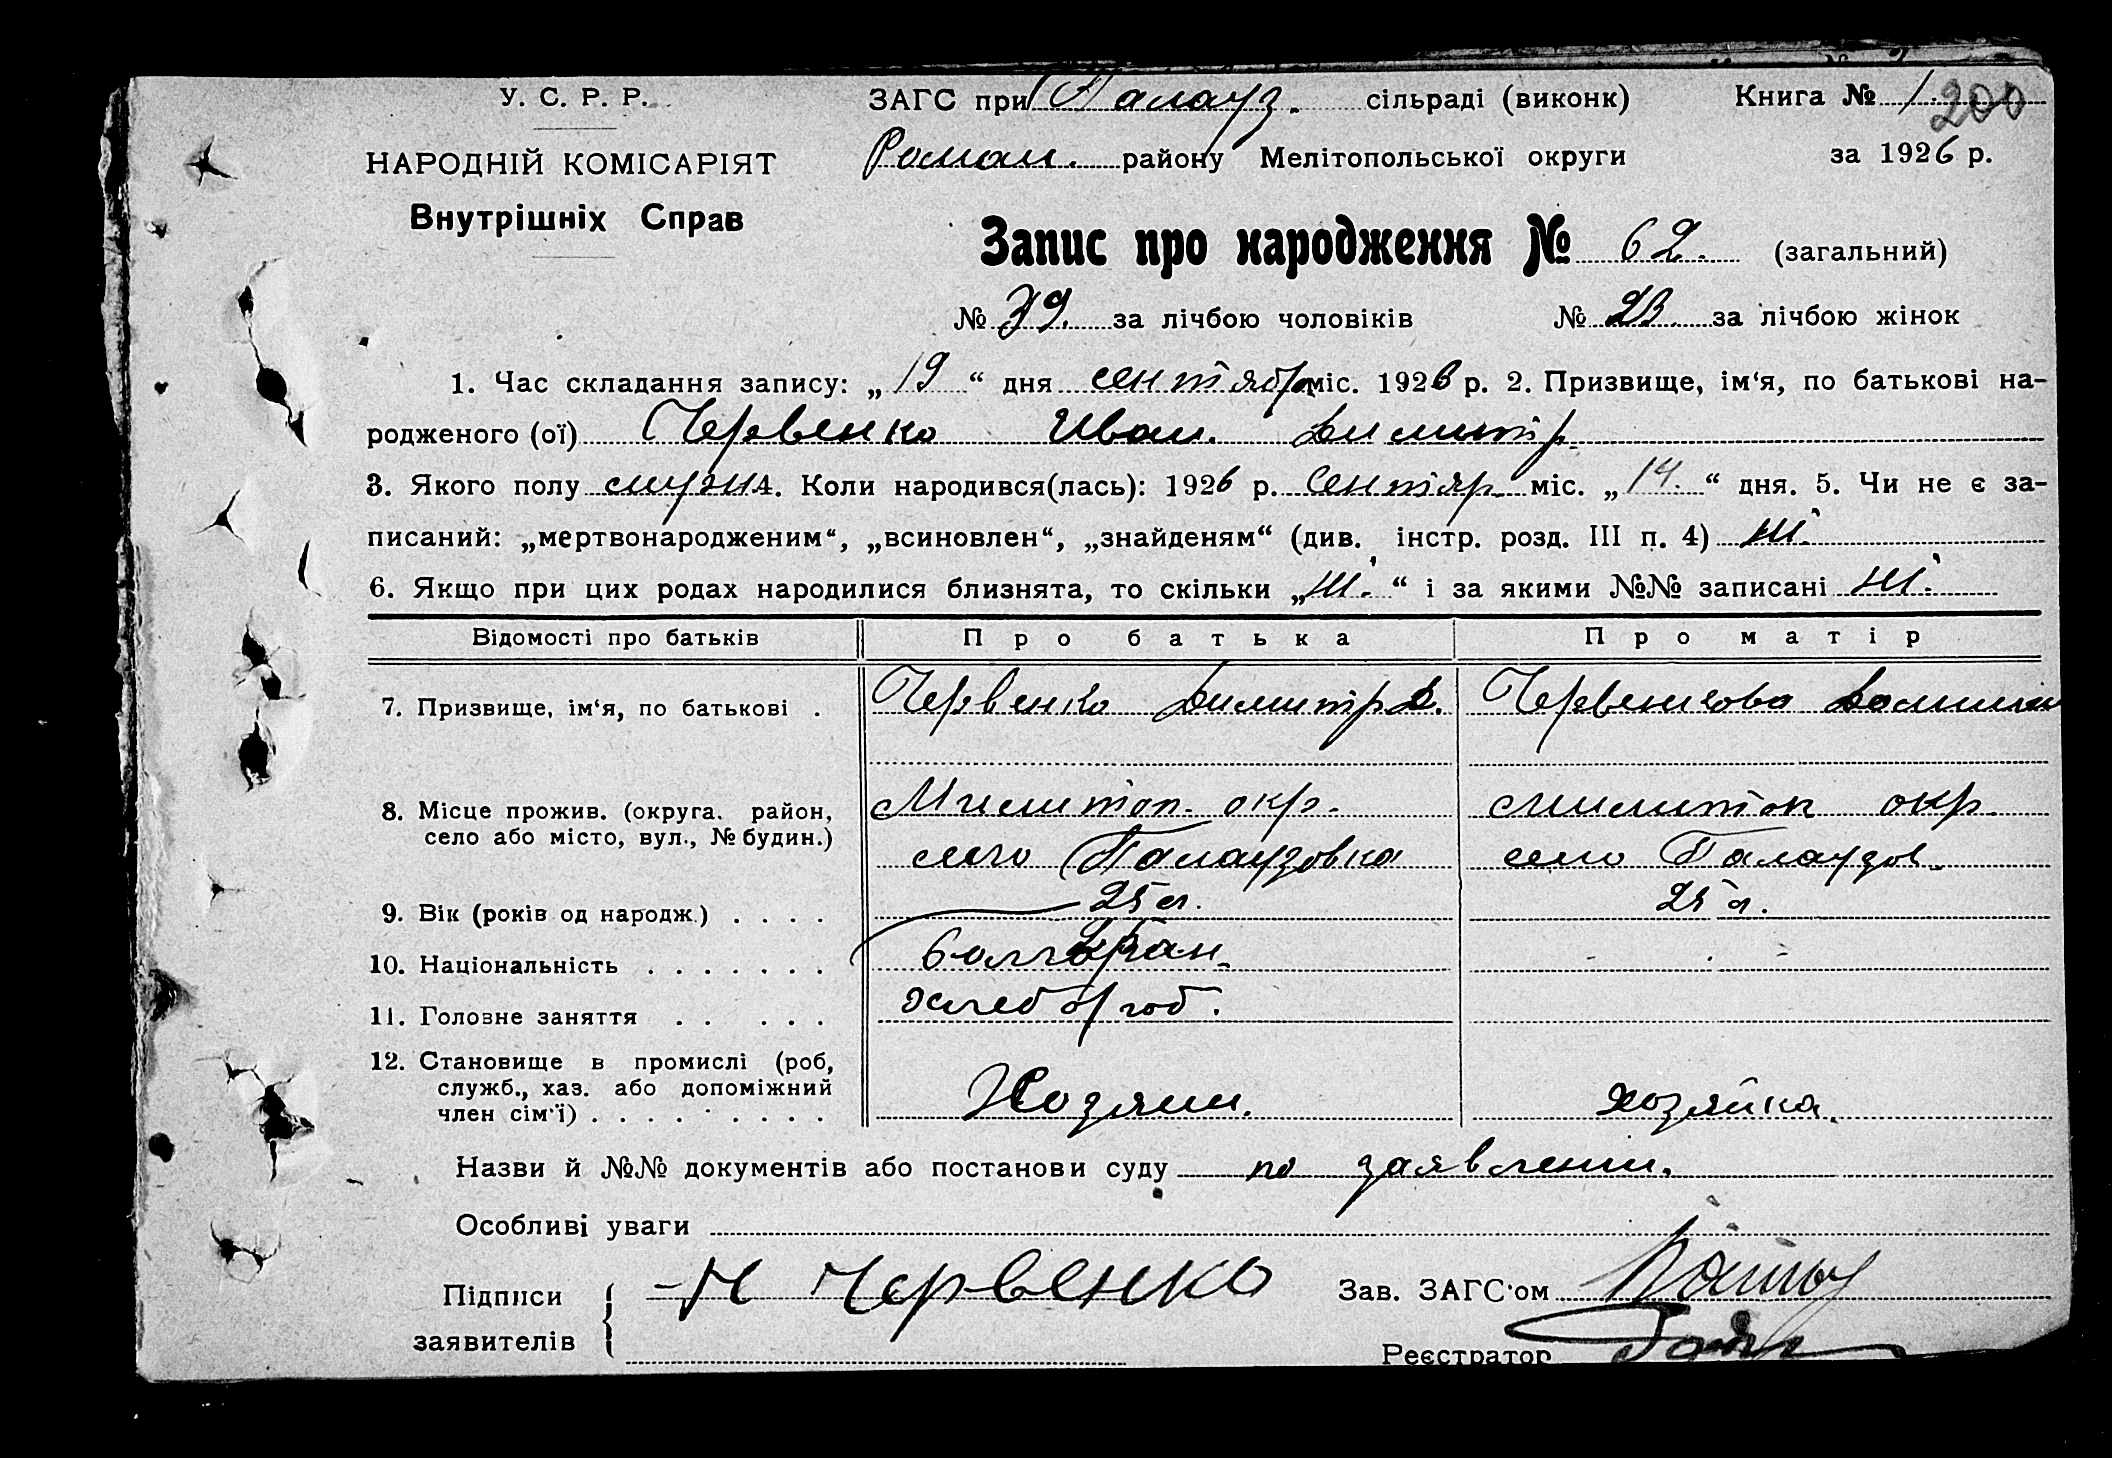 У. С. Р. Р.
НАРОДНІЙ КОМІСАРІЯТ
Внутрішніх Справ
ЗАГС при Палауз. сільраді (виконк) Книга № 1. 200
Роман. району Мелітопольської округи за 1926 р.
Запис про народження № 62. (загальний)
№ 39. за лічбою чоловіків № 23 за лічбою жінок
1. Час складання запису: „19“ дня сентября міс. 1926 р. 2. Призвище, ім‘я, по батькові на-
родженого (ої) Червенко Иван. Димитр.
3. Якого полу мужч. 4. Коли народився(лась): 1926 р. Сентяр міс. „14.“ дня. 5. Чи не є за-
писаний: „мертвонародженим“, „всиновлен“, „знайденям“ (див. інстр. розд. III п. 4) ні.
6. Якщо при цих родах народилися близнята, то скільки „ні.“ і за якими №№ записані ні.
Відомості про батьків Про батька Про матір
7. Призвище, ім‘я, по батькові . Червенко Димитр Д. Червенкова
8. Місце прожив. (округа. район, Милитоп. окр. милитоп окр.
село або місто, вул., № будин.) село Палаузовка село Палаузов.
9. Вік (років од народж.) . . . . 25 л. 25 л.
10. Національність . . . . . . . болгоран.
11. Головне заняття . . . . . хлебороб.
12. Становище в промислі (роб,
служб., хаз. або допоміжний
член сім‘ї) . . . . . . . . . Хозяин. хозяйка.
Назви й №№ документів або постанови суду по заявлении.
Особливі уваги
Підписи Червенко Зав. ЗАГС‘ом
заявителів Реєстратор